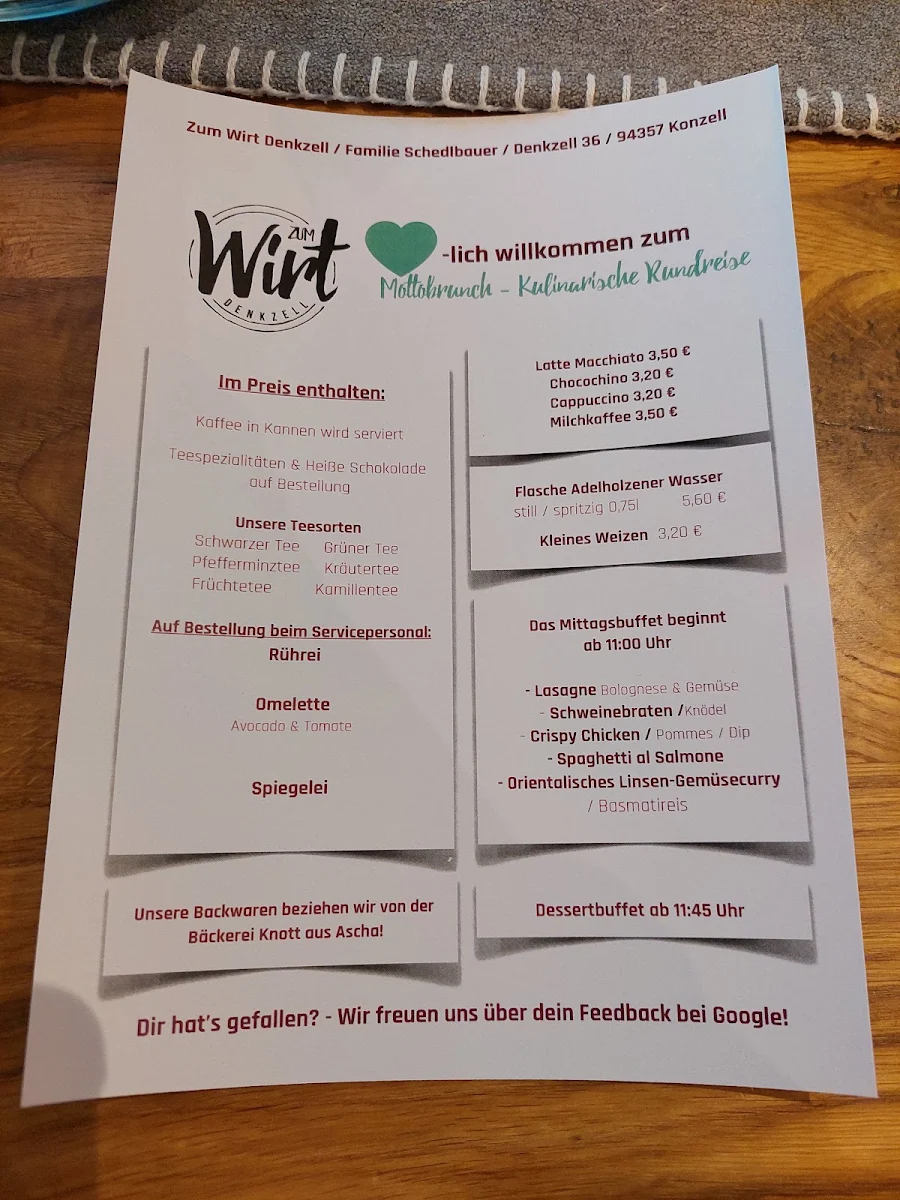 Zum Wirt Denkzell / Familie Schedlbauer / Denkzell 36 / 94357 Konzell
ZUM
Wirt
DENKZELL
-lich willkommen zum
Mottobrunch - Kulinarische Rundreise
Im Preis enthalten:
Kaffee in Kannen wird serviert
Teespezialitäten & Heiße Schokolade
auf Bestellung
Unsere Teesorten
Schwarzer Tee Grüner Tee
Pfefferminztee Kräutertee
Früchtetee Kamillentee
Auf Bestellung beim Servicepersonal:
Rührei
Omelette
Avocado & Tomate
Spiegelei
Unsere Backwaren beziehen wir von der
Bäckerei Knott aus Ascha!
Latte Macchiato 3,50 €
Chocochino 3,20 €
Cappuccino 3,20 €
Milchkaffee 3,50 €
Flasche Adelholzener Wasser
still / spritzig 0,75l 5,60 €
Kleines Weizen 3,20 €
Das Mittagsbuffet beginnt
ab 11:00 Uhr
- Lasagne Bolognese & Gemüse
- Schweinebraten /Knödel
- Crispy Chicken / Pommes / Dip
- Spaghetti al Salmone
- Orientalisches Linsen-Gemüsecurry
/ Basmatireis
Dessertbuffet ab 11:45 Uhr
Dir hat's gefallen? - Wir freuen uns über dein Feedback bei Google!